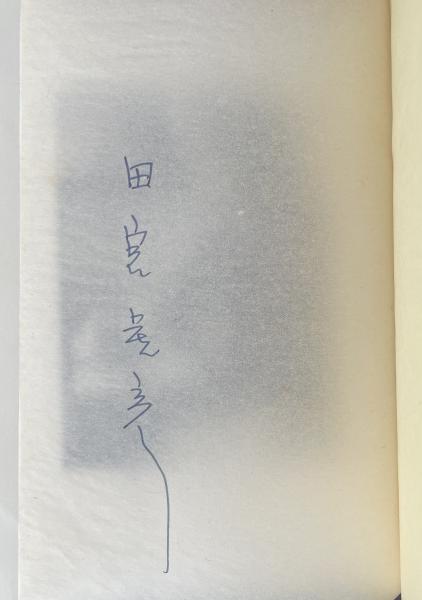 田宮虎彦